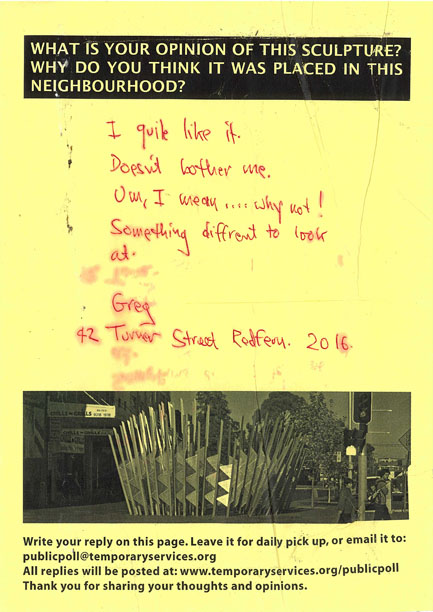 WHAT IS YOUR OPINION OF THIS SCULPTURE?
WHY DO YOU THINK IT WAS PLACED IN THIS
NEIGHBOURHOOD?
I quite like it.
Doesn't bother me.
Um, I mean.... why not!
Something diffrent to look
at.
Greg
42 Turner Street Redfern. 2016.
Write your reply on this page. Leave it for daily pick up, or email it to:
publicpoll@temporaryservices.org
All replies will be posted at: www.temporaryservices.org/publicpoll
Thank you for sharing your thoughts and opinions.